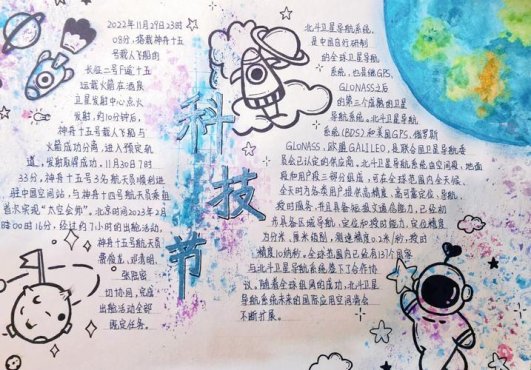 2022年11月29日23时
08分，搭载神舟十五
号载人飞船的
长征二号F遥十五
运载火箭在酒泉
卫星发射中心点火
发射，约10分钟后，
神舟十五号载人飞船与
火箭成功分离，进入预定轨
道，发射取得成功，11月30日7时
33分，神舟十五号3名航天员顺利进
驻中国空间站，与神舟十四号航天员乘组
首次实现“太空会师”。北京时间2023年2月
时00时16分，经过约7小时的出舱活动，
神舟十五号航天员
费俊龙、邓清明、
张陆密
切协同，完成
出舱活动全部
既定任务。
科技节
北斗卫星导航系统，
是中国自行研制
的全球卫星导航
系统，也是继GPS、
GLONASS之后
的第三个成熟的卫星
导航系统。北斗卫星导航
系统(BDS)和美国GPS、俄罗斯
GLONASS、欧盟GALILEO，是联合国卫星导航委
员会已认定的供应商。北斗卫星导航系统由空间段、地面
段和用户段三部分组成，可在全球范围内全天候、
全天时为各类用户提供高精度、高可靠定位、导航、
授时服务，并且具备短报文通信能力，已经初
步具备区域导航、定位和授时能力，定位精度
为分米、厘米级别，测速精度0.2米/秒，授时
精度10纳秒。全球范围内已经有137个国家
与北斗卫星导航系统签下了合作协
议。随着全球组网的成功，北斗卫星
导航系统未来的国际应用空间将会
不断扩展。